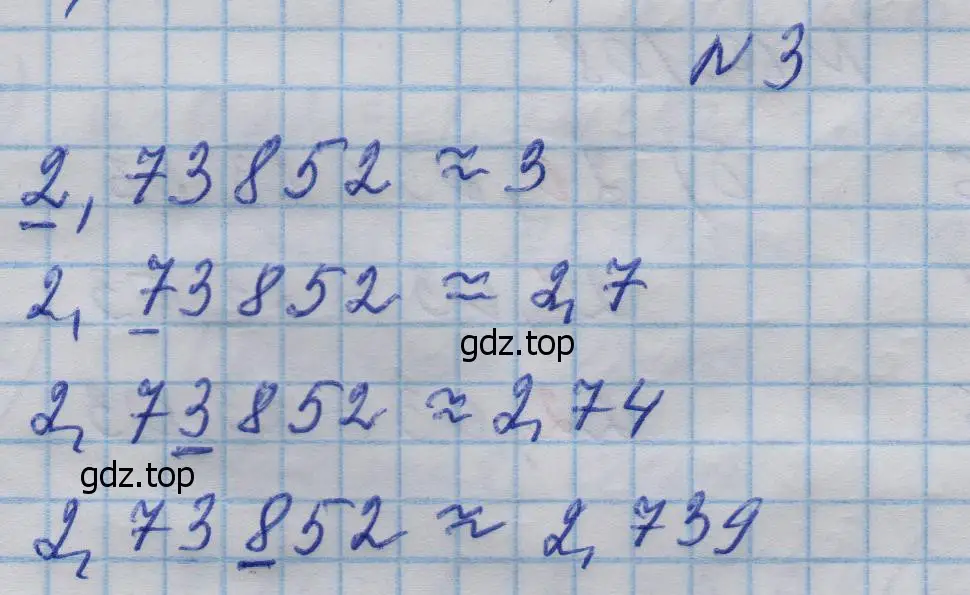 N 3
2, 73852 ≈ 3
2, 73852 ≈ 2,7
gdz.top
2, 73852 ≈ 2,74
gdz.top
2, 73852 ≈ 2,739